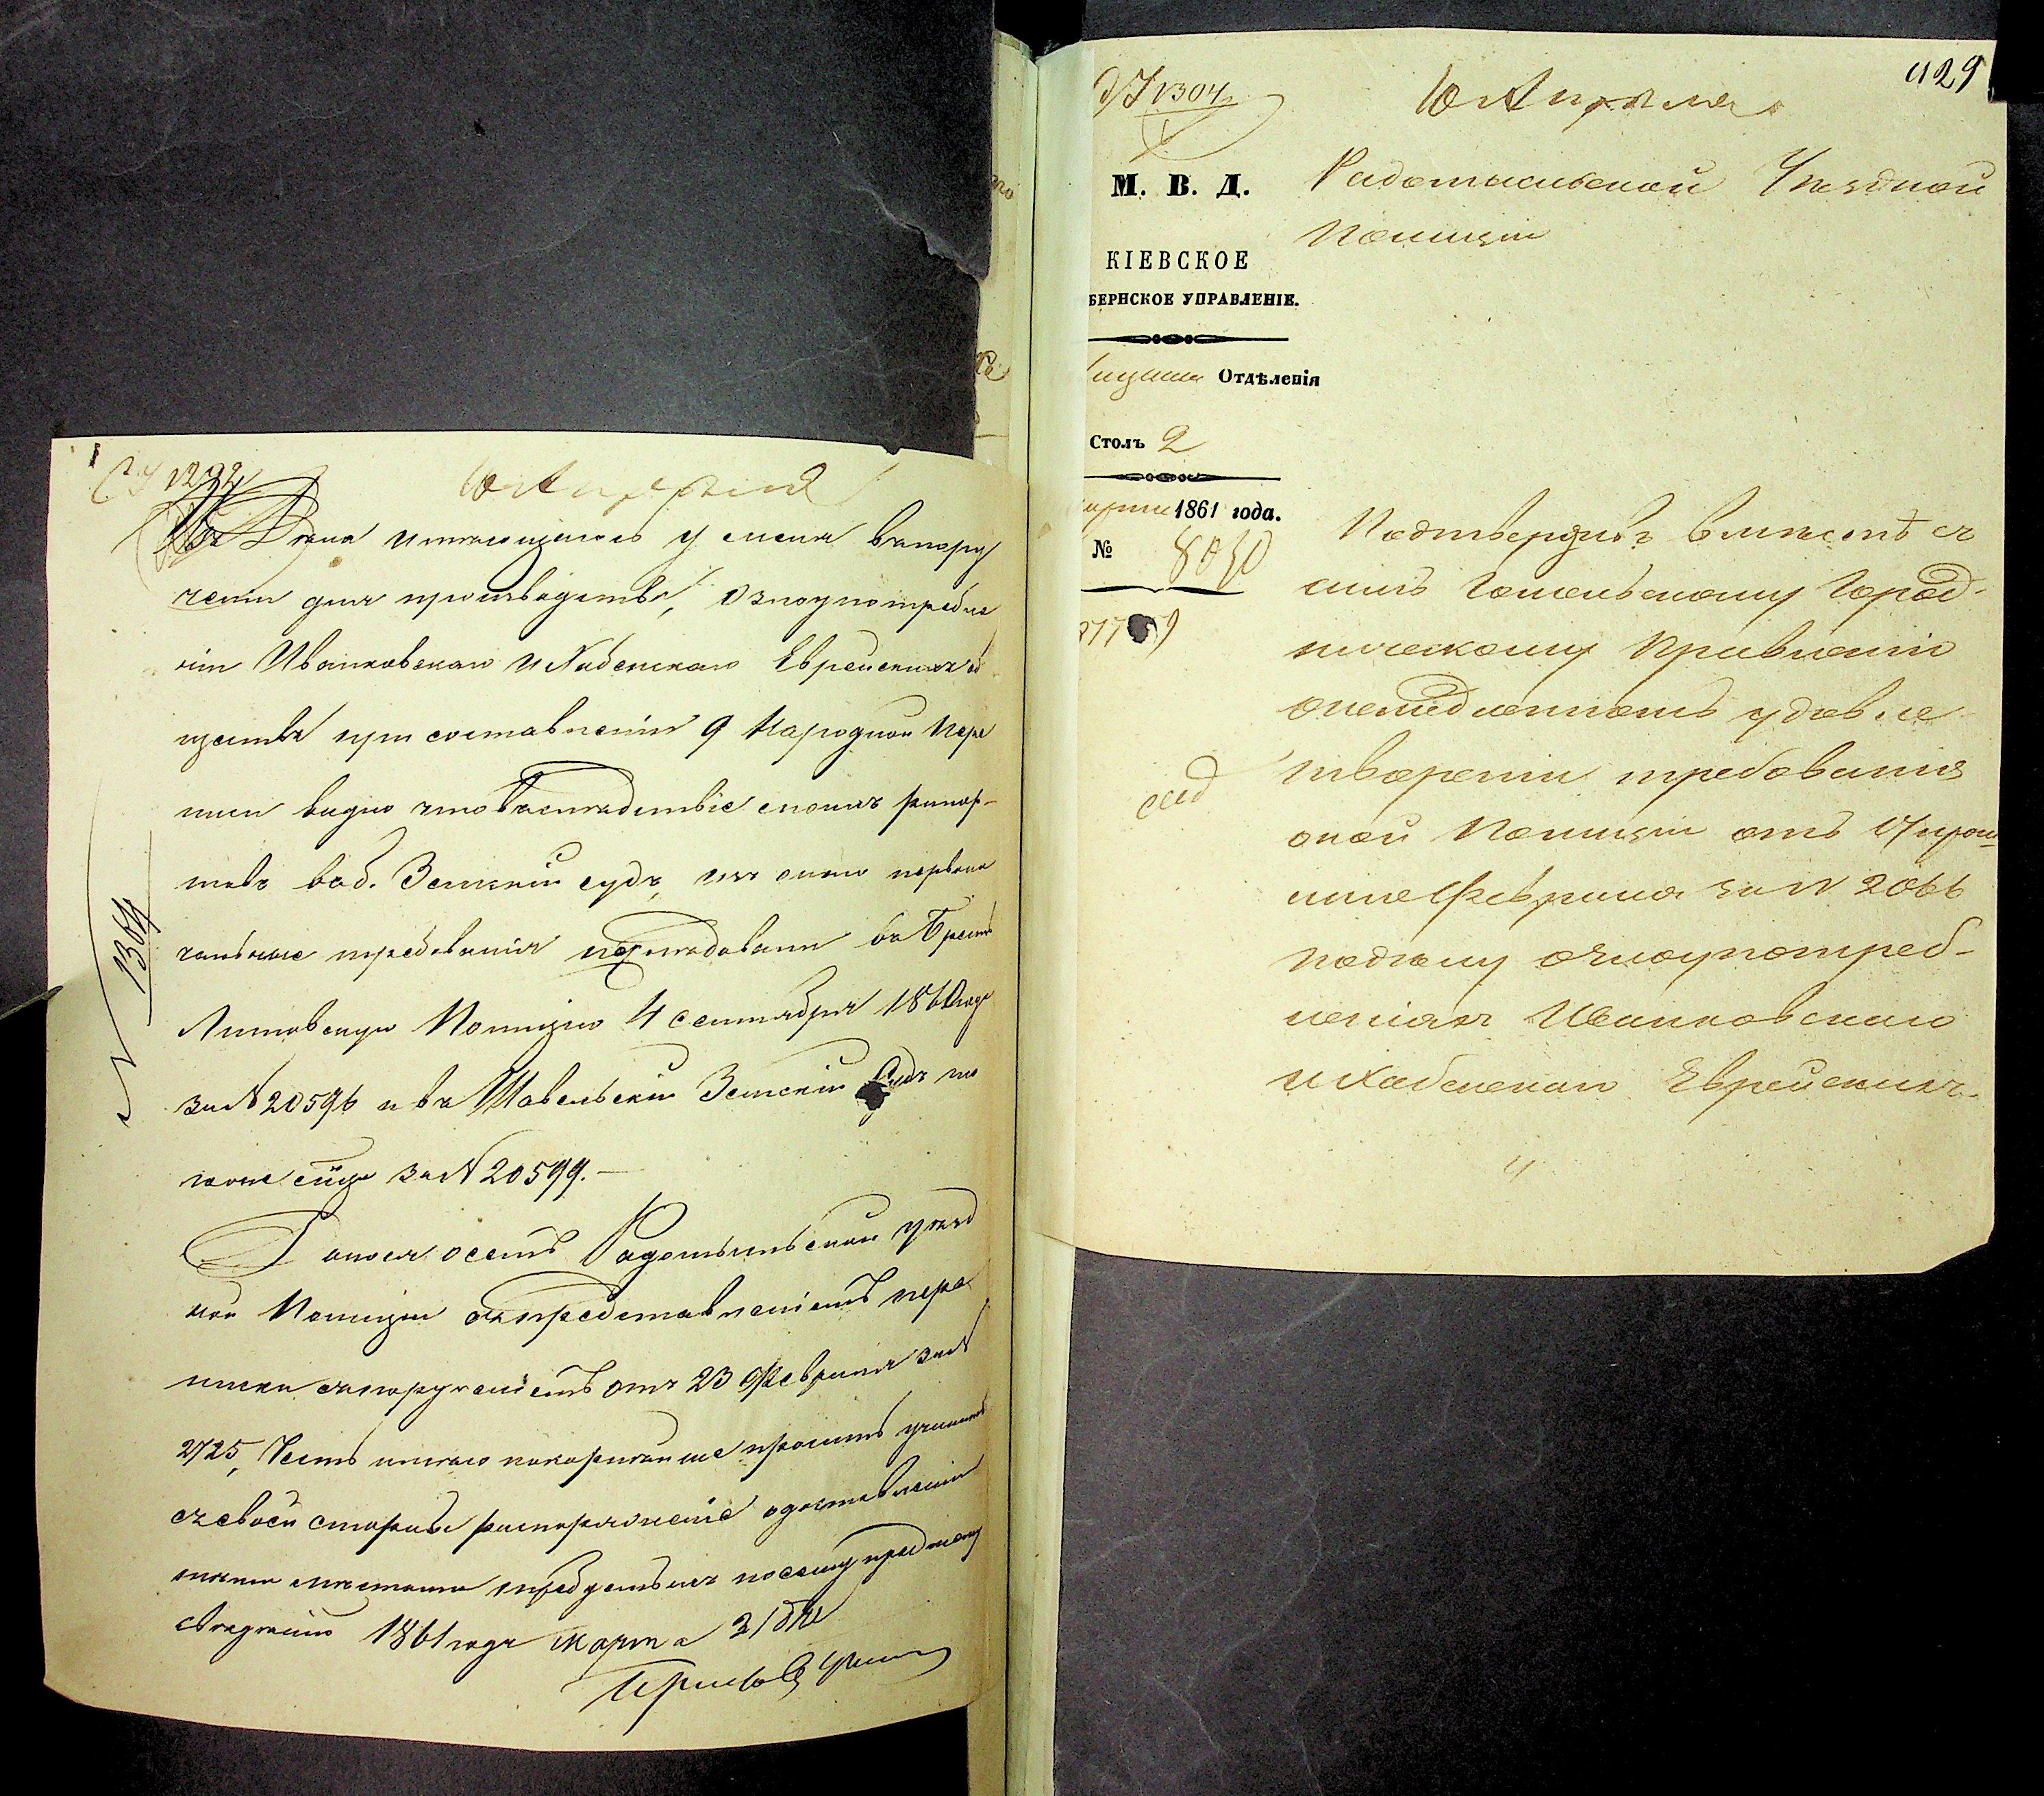 1292
10 Апреля
Изъ Дела имеющагося у меня въ пору
чении для производства, о злоупотребле
нiи Иванковскаго и Хабенскаго Еврейскихъ об
ществъ при составленiи 9 Народной Пере
писи видно что въ следствiе моихъ рапор-
товъ въ б. Земскiй судъ, изъ онаго первона
чальные требованiя последовали въ Брестъ
Литовскую Полицiю 4 сентября 1860 года
за № 20596 и въ Шавельскiй Земскiй Судъ то
гоже числа за № 20599.-
Донося о семъ Радомысльской уезд
ной Полицiи съ представленiемъ пере
писки съ порученiемъ отъ 23 Февраля за №
2725, Честь имею покорнейше просить учинить
съ своей стороны распоряженiе о доставленiи
теми местами требуемыхъ по сему предмету
сведенiй 1861 года Марта 31 дня
№ 1304
429
1304
10 Апреля
М. В. Д.
КІЕВСКОЕ
БЕРНСКОЕ УПРАВЛЕНІЕ.
Отдѣленія
Столъ 2
1861 года.
№ 8030
Радомысльской Уездной
Полицiи
Подтвердивъ вместѣ съ
симъ Гомельскому Город-
ническому Правленiю
о немедленномъ удовле
творенiи требованiя
оной Полицiи отъ 17 прош
лаго Февраля за № 2066
по делу о злоупотреб-
ленiяхъ Иванковскаго
и Хабенскаго Еврейскихъ